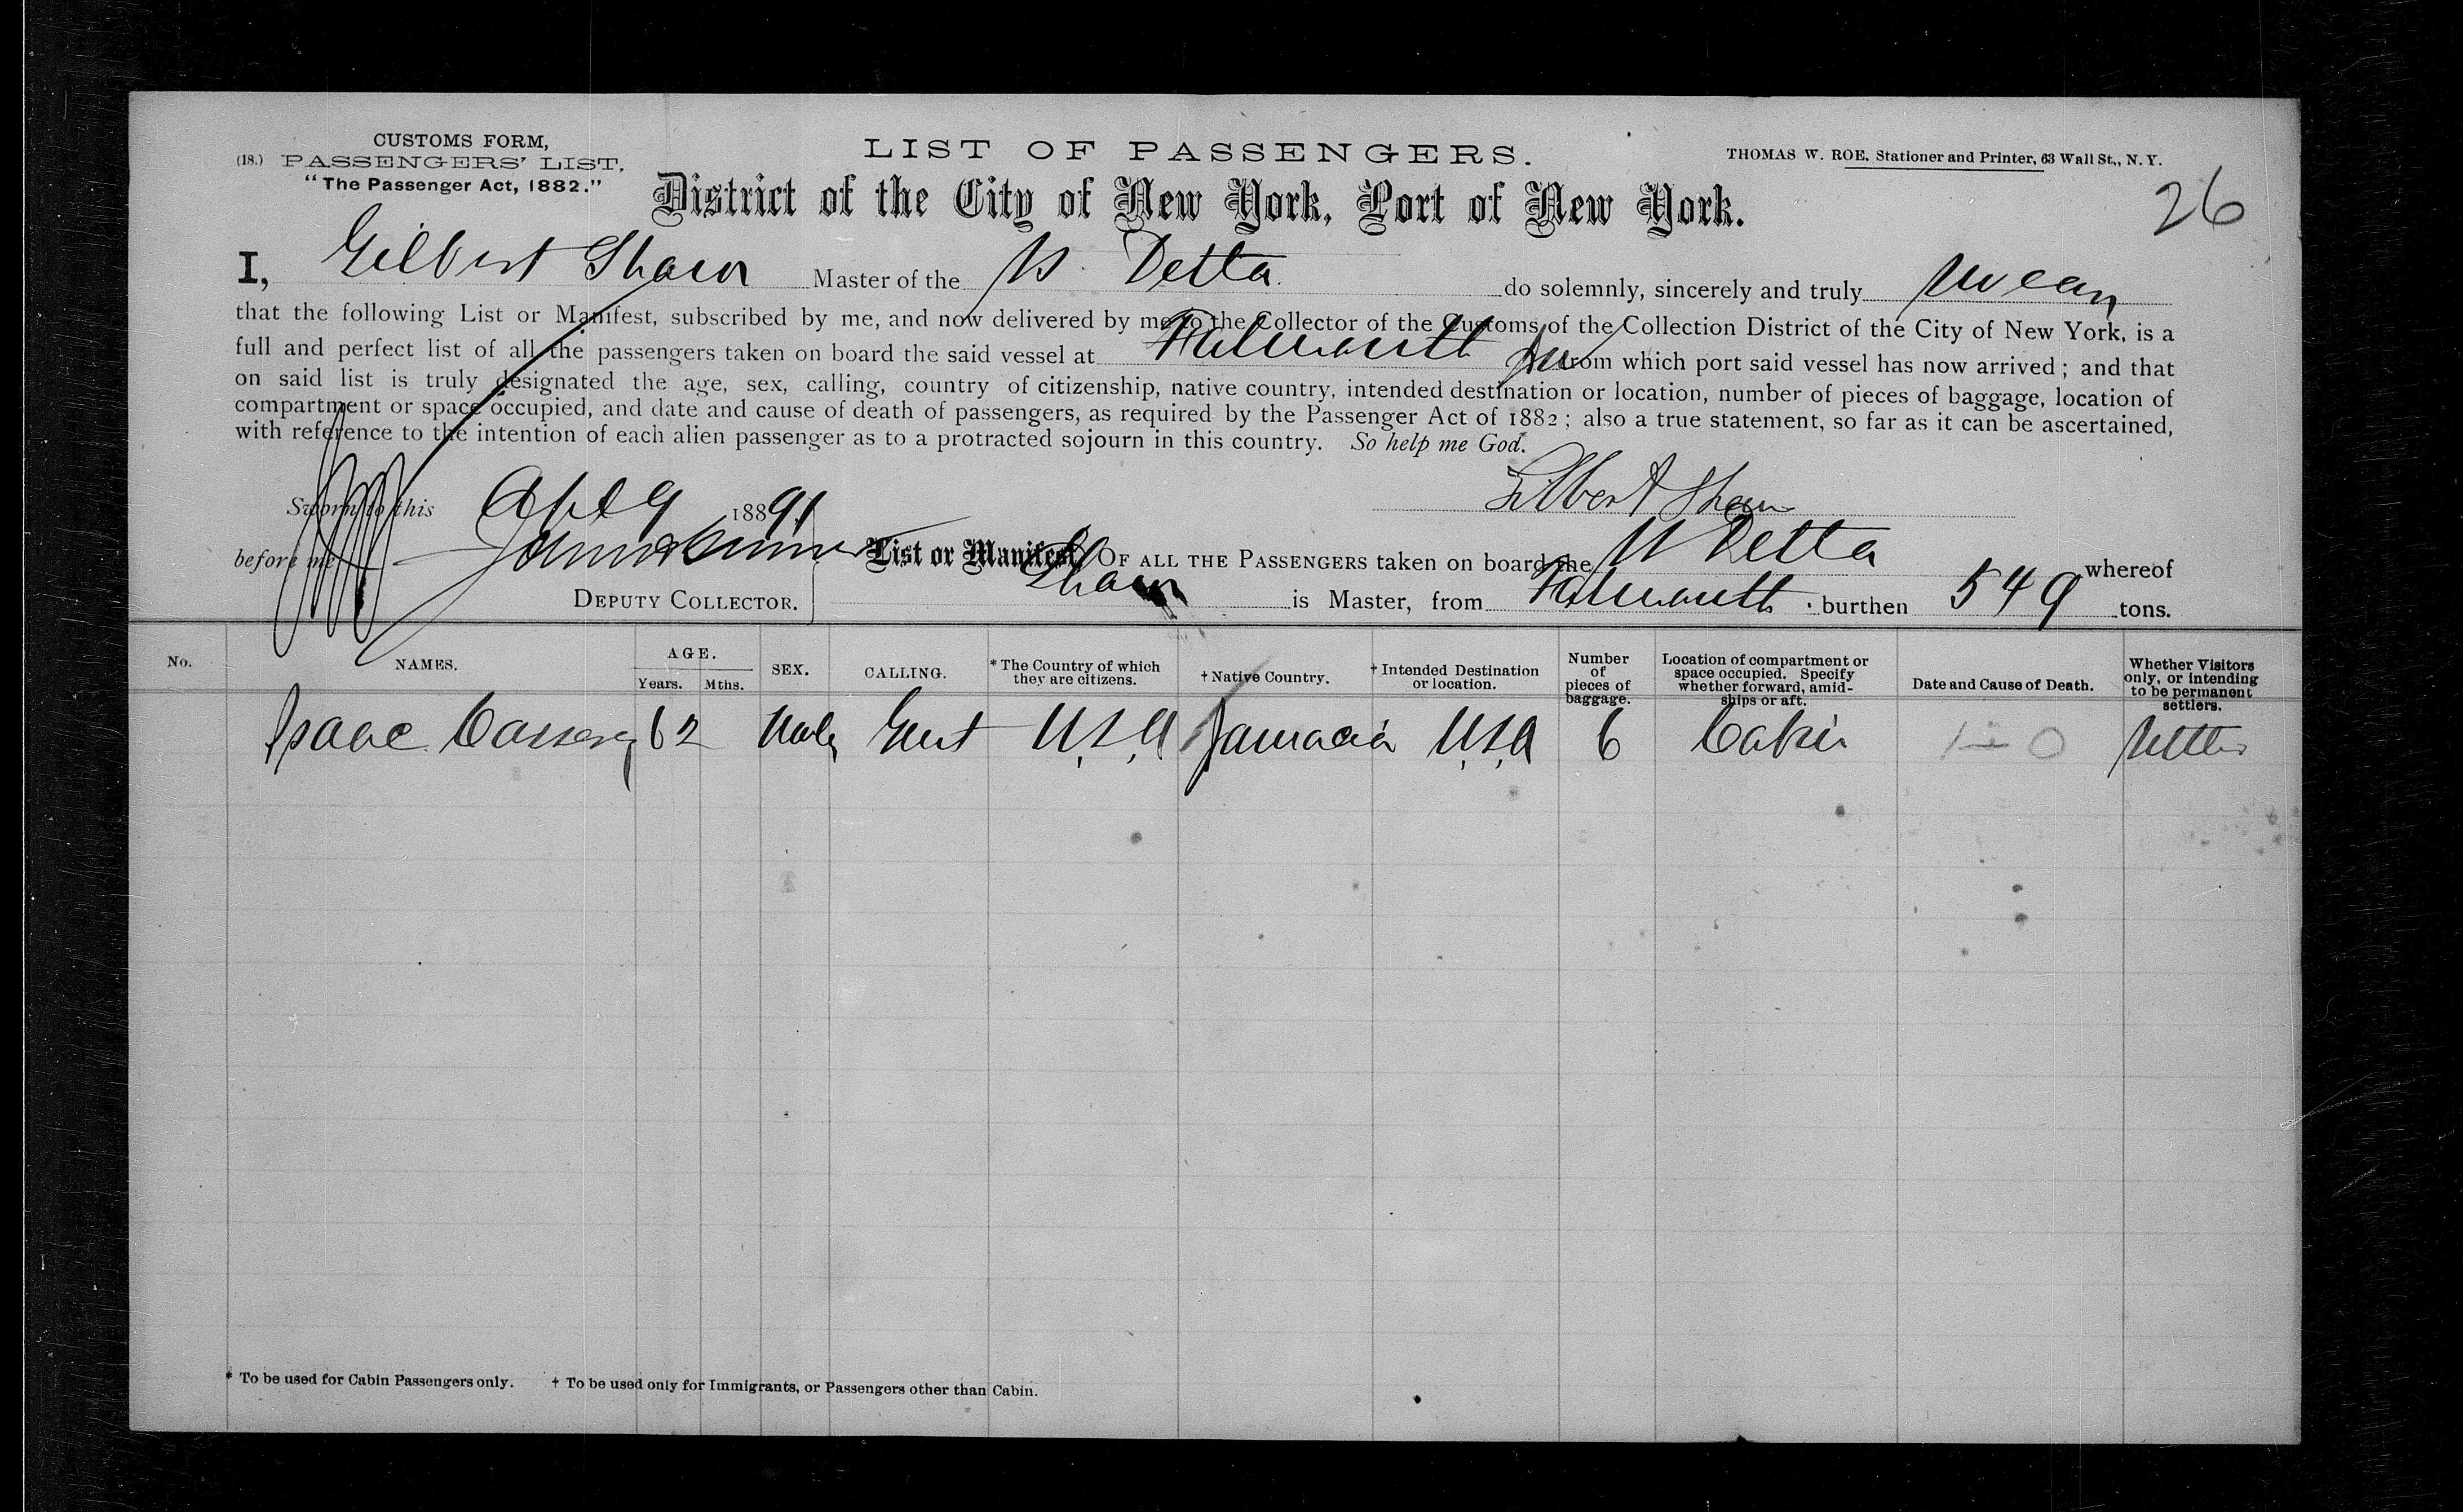 CUSTOMS FORM,
(18.) PASSENGERS' LIST.
"The Passenger Act, 1882."
LIST OF PASSENGERS.
THOMAS W. ROE, Stationer and Printer, 63 Wall St., N. Y.
District of the City of New York, Port of New York.
26
I, Gilbert Shaw Master of the Detta do solemnly, sincerely and truly swear
that the following List or Manifest, subscribed by me, and now delivered by me to the Collector of the Customs of the Collection District of the City of New York, is a
full and perfect list of all the passengers taken on board the said vessel at Falmouth Ja from which port said vessel has now arrived; and that
on said list is truly designated the age, sex, calling, country of citizenship, native country, intended destination or location, number of pieces of baggage, location of
compartment or space occupied, and date and cause of death of passengers, as required by the Passenger Act of 1882; also a true statement, so far as it can be ascertained,
with reference to the intention of each alien passenger as to a protracted sojourn in this country. So help me God.
Sworn to this Apl 9 18891
Gilbert Shaw
before me
List or Manifest OF ALL THE PASSENGERS taken on board the Detta whereof
DEPUTY COLLECTOR.
Shaw is Master, from Falmouth burthen 549 tons.
No. NAMES. AGE. Years. Mths. SEX. CALLING. * The Country of which they are citizens. † Native Country. † Intended Destination or location. Number of pieces of baggage. Location of compartment or space occupied. Specify whether forward, amidships or aft. Date and Cause of Death. Whether Visitors only, or intending to be permanent settlers.
Isaac 62 Male Gent U.S.A Jamaica U.S.A 6 Cabin Settler
* To be used for Cabin Passengers only. † To be used only for Immigrants, or Passengers other than Cabin.